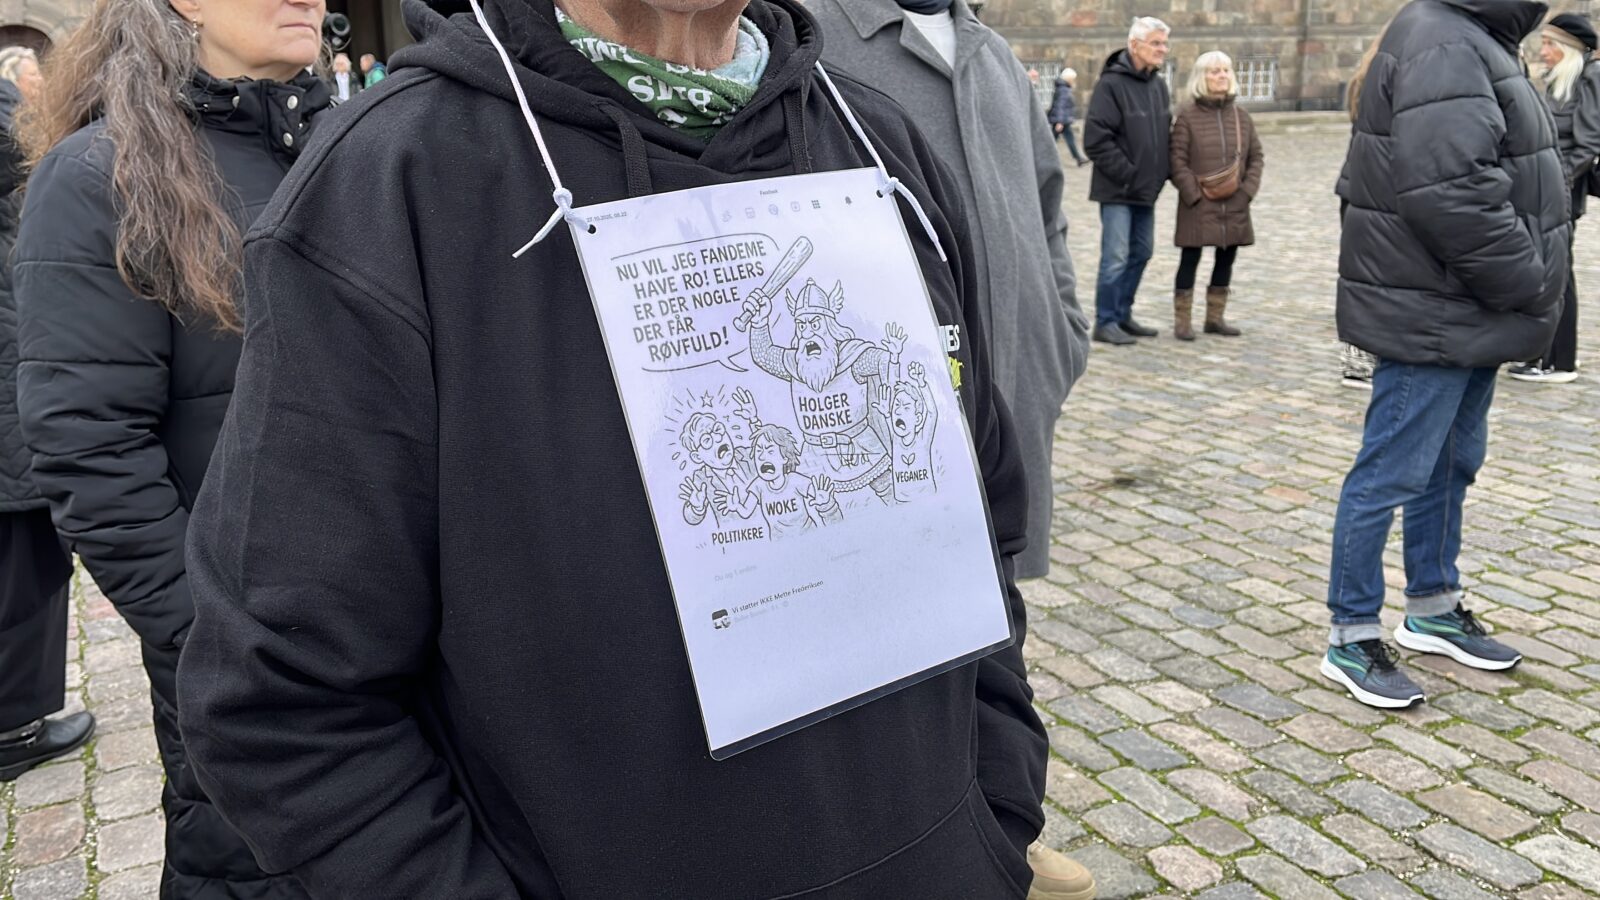 Facebook
27.10.2025, 08.22
NU VIL JEG FANDEME
HAVE RO! ELLERS
ER DER NOGLE
DER FÅR
RØVFULD!
HOLGER
DANSKE
VEGANER
WOKE
POLITIKERE
Du og 1 anden
1 kommentar
Vi støtter IKKE Mette Frederiksen